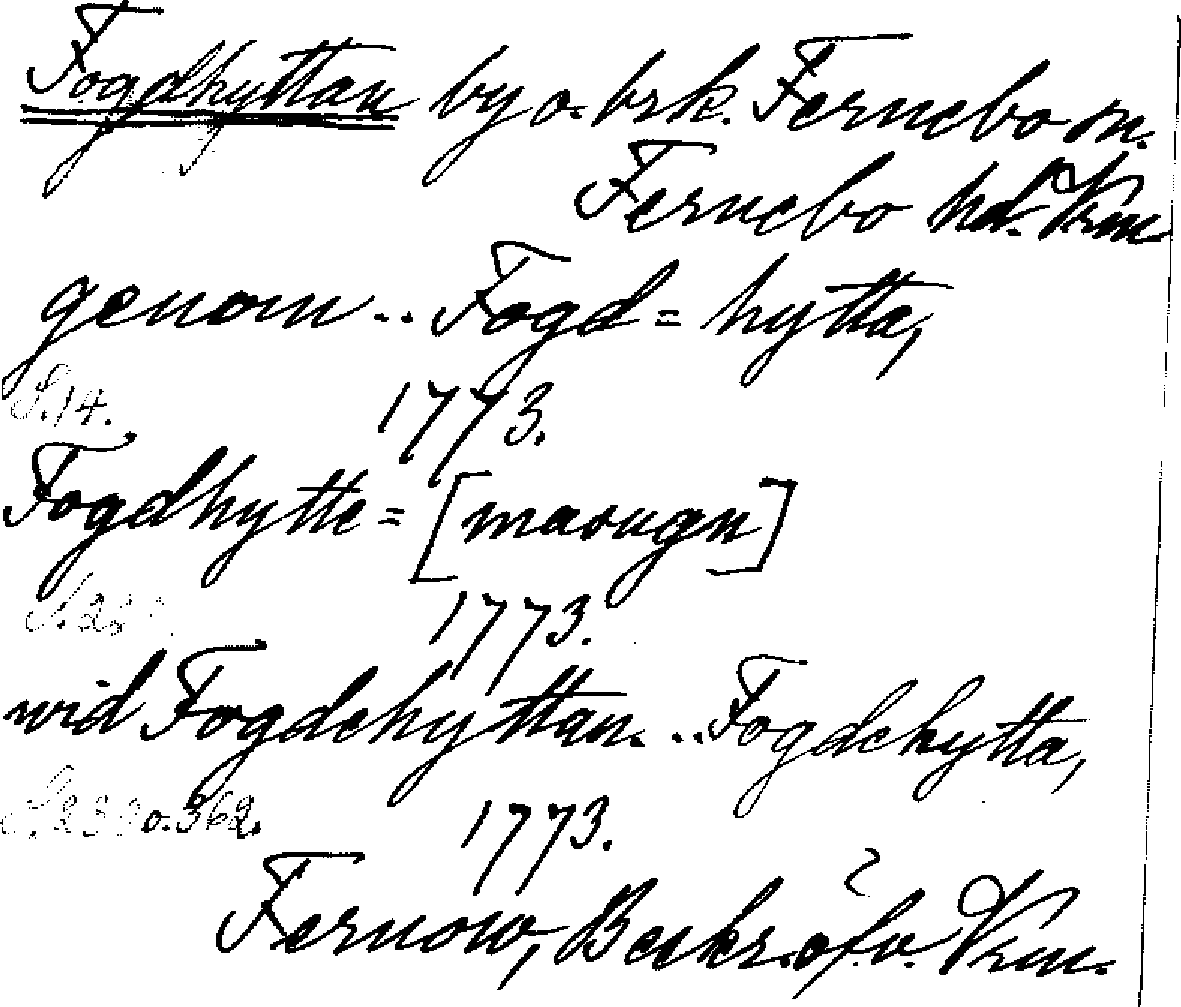 Fogdhyttan by o. brk. Fernebo sn.
Fernebo hd. Vrm
genom .. Fogd = hytta,
S. 14. 1773.
Fogdhytte = [masugn]
1773.
wid Fogdehyttan. .. Fogdehytta,
o. 362. 1773.
Fernow, Beskr. öfv. Vrm.